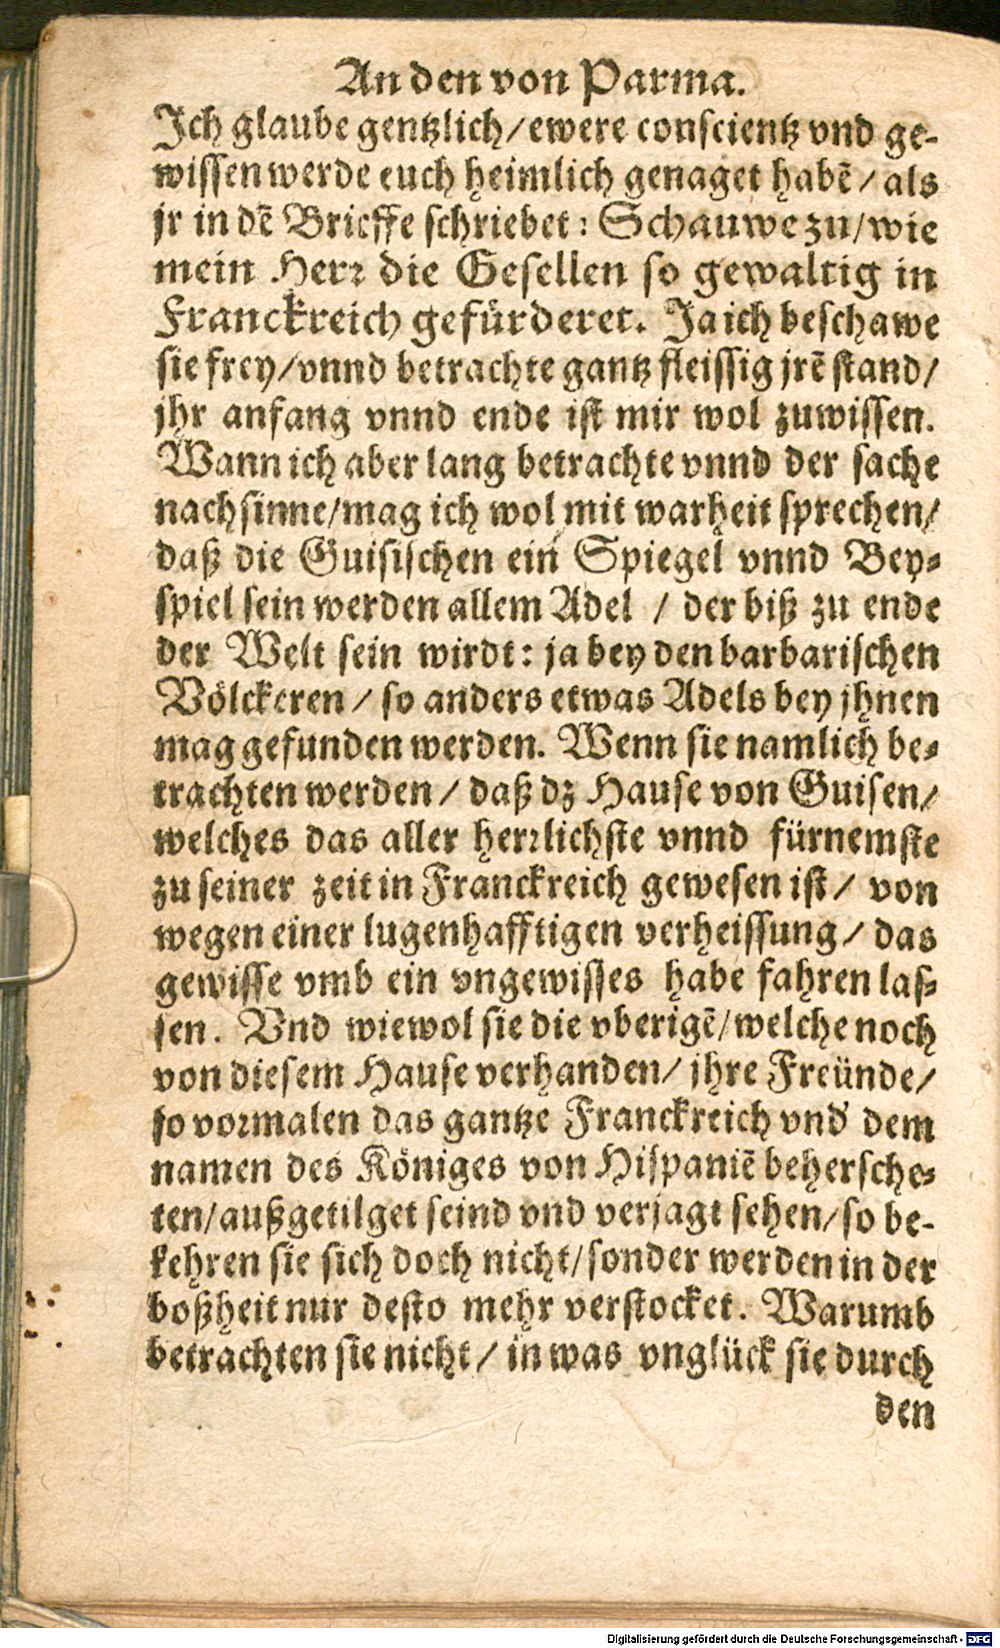 An den von Parma.
Ich glaube gentzlich/ewere conscientz vnd ge-
wissen werde euch heimlich genaget habē/als
jr in dē Brieffe schriebet: Schauwe zu/wie
mein Herr die Gesellen so gewaltig in
Franckreich gefürderet. Ja ich beschawe
sie frey/vnnd betrachte gantz fleissig jrē stand/
jhr anfang vnnd ende ist mir wol zuwissen.
Wann ich aber lang betrachte vnnd der sache
nachsinne/mag ich wol mit warheit sprechen/
daß die Guisischen ein Spiegel vnnd Bey-
spiel sein werden allem Adel / der biß zu ende
der Welt sein wirdt: ja bey den barbarischen
Völckeren / so anders etwas Adels bey jhnen
mag gefunden werden. Wenn sie namlich be-
trachten werden / daß dz Hause von Guisen/
welches das aller herrlichste vnnd fürnemste
zu seiner zeit in Franckreich gewesen ist / von
wegen einer lugenhafftigen verheissung / das
gewisse vmb ein vngewisses habe fahren las-
sen. Vnd wiewol sie die vberigē/welche noch
von diesem Hause verhanden/ jhre Freünde/
so vormalen das gantze Franckreich vnd dem
namen des Königes von Hispaniē behersche-
ten/außgetilget seind vnd verjagt sehen/so be-
kehren sie sich doch nicht/sonder werden in der
boßheit nur desto mehr verstocket. Warumb
betrachten sie nicht / in was vnglück sie durch
den
Digitalisierung gefördert durch die Deutsche Forschungsgemeinschaft - DFG